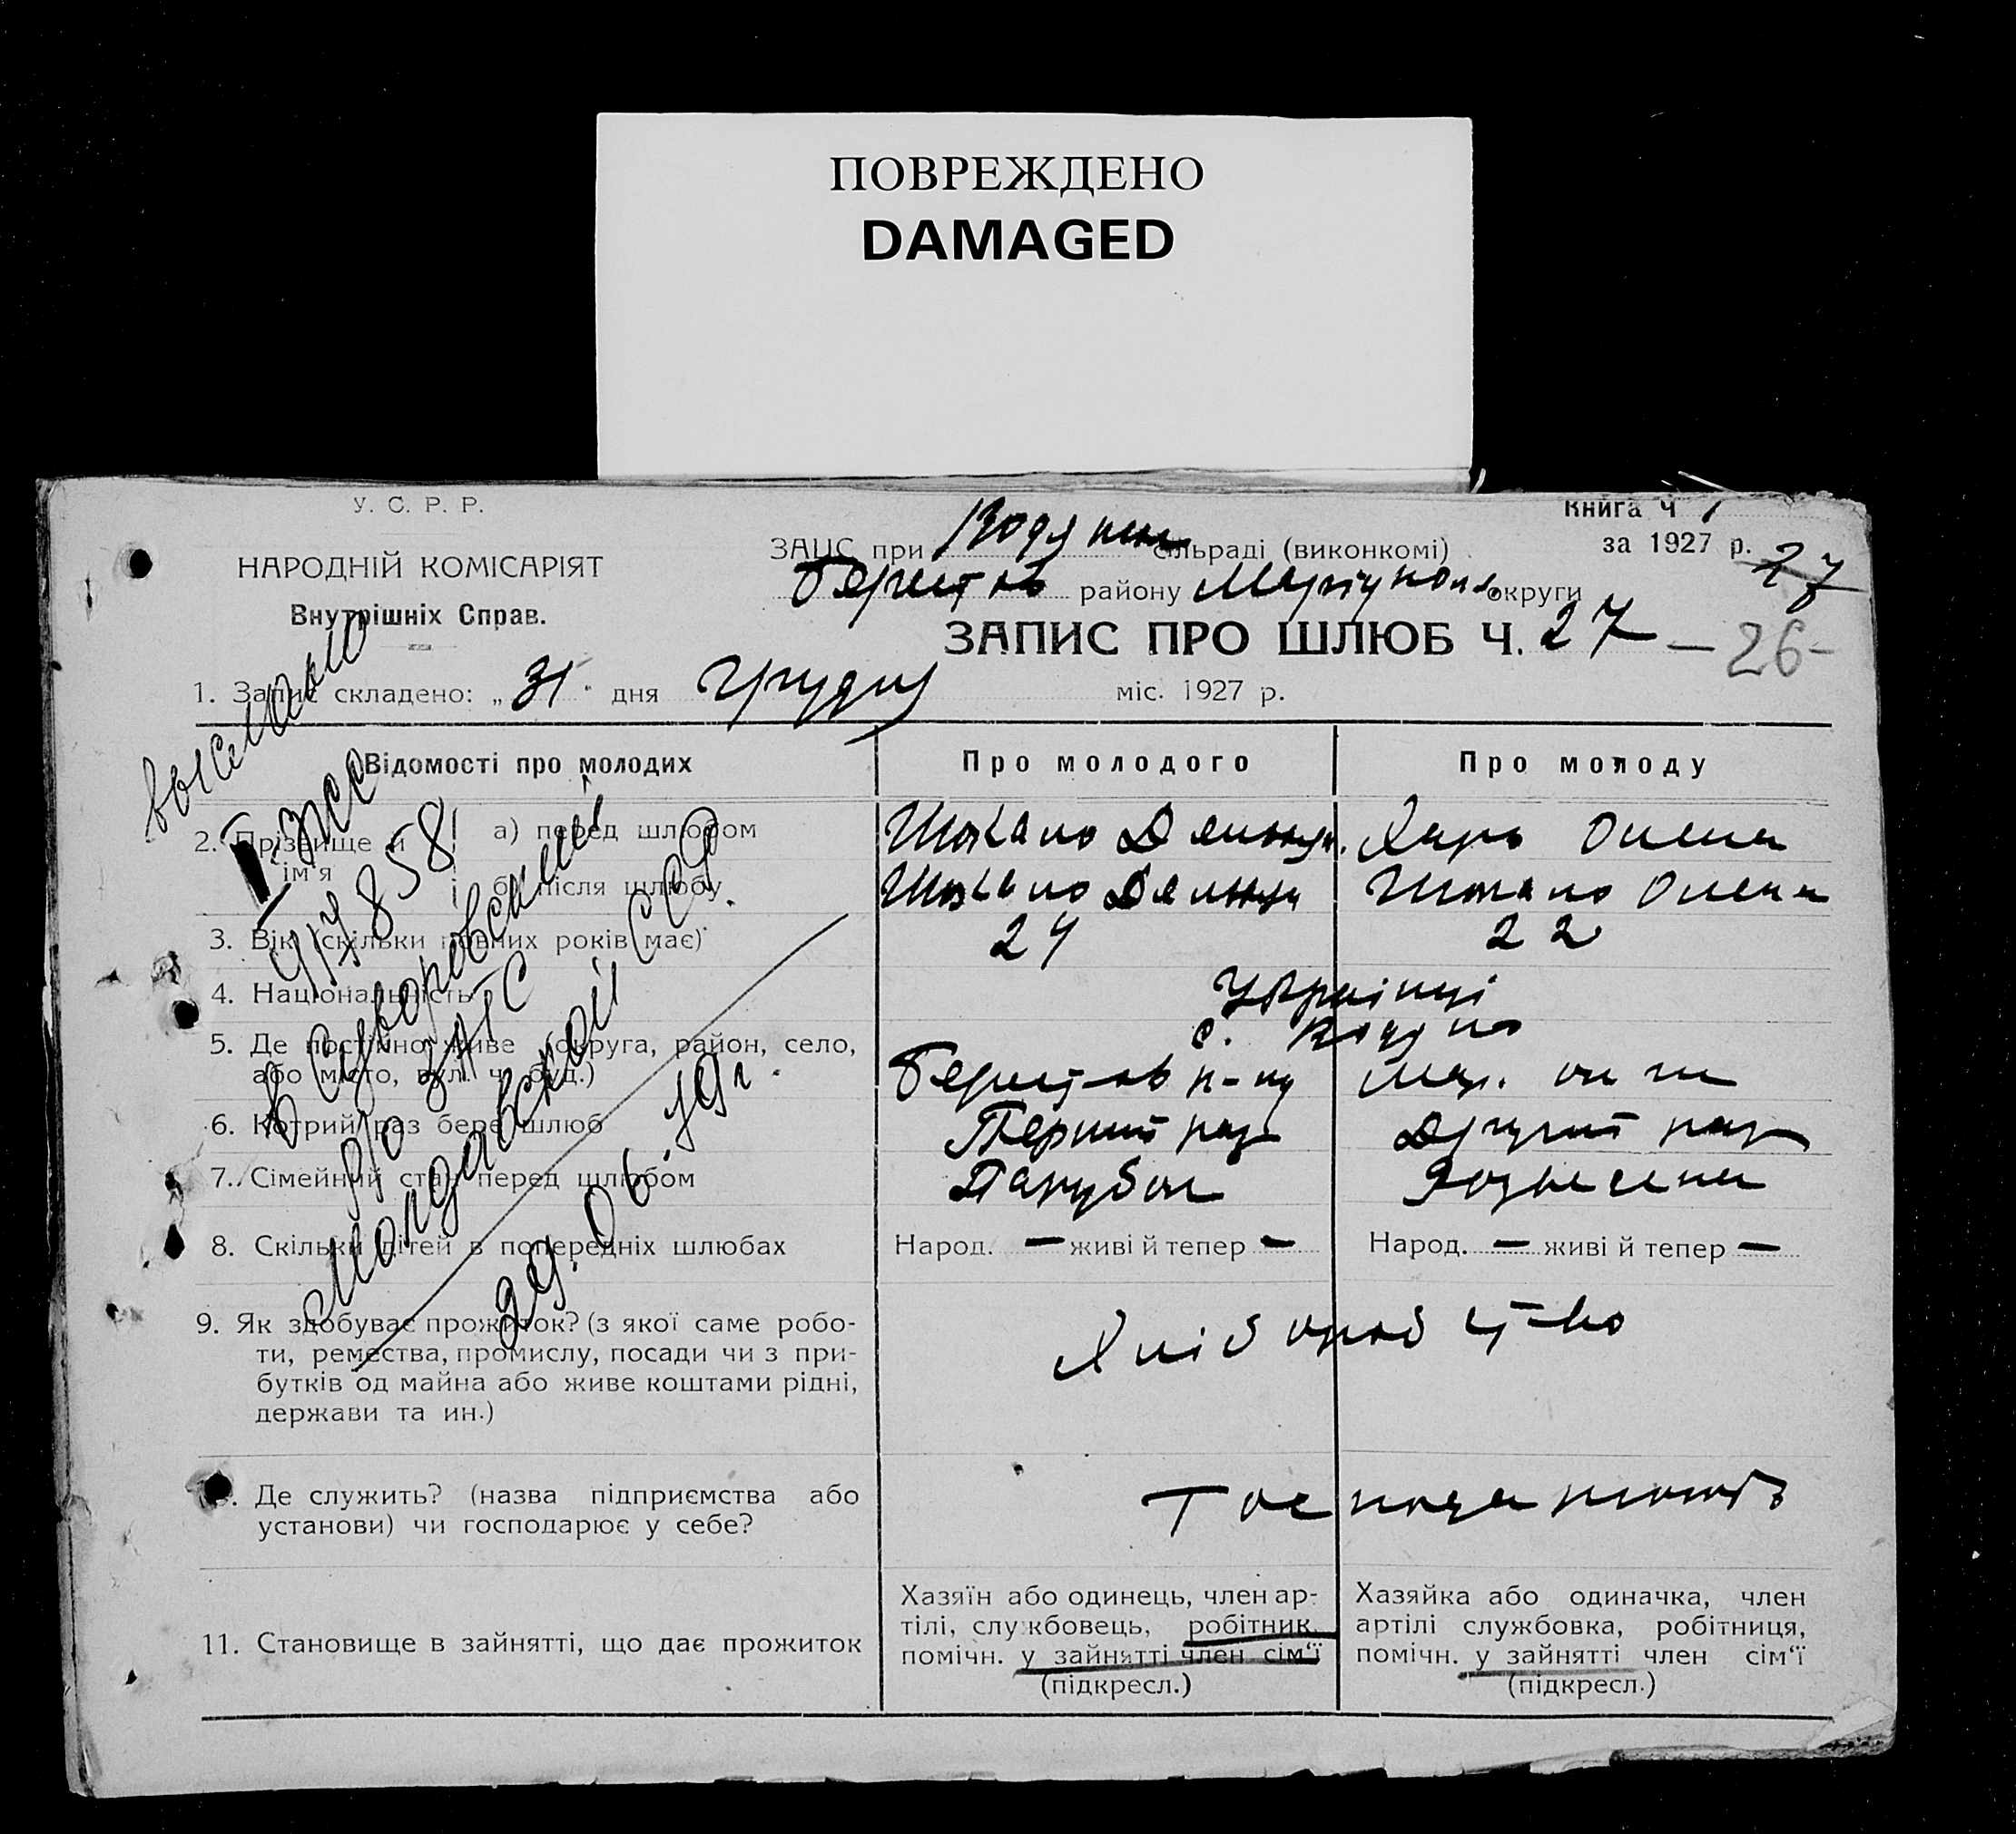 ПОВРЕЖДЕНО
DAMAGED
У. С. Р. Р.
НАРОДНІЙ КОМІСАРІЯТ
Внутрішніх Справ.
Книга Ч 1
за 1927 р. 27
ЗАЦС при Водян сільраді (виконкомі)
Берест-кв району Маріупол округи
ЗАПИС ПРО ШЛЮБ Ч. 27 - 26 -
1. Запис складено: „31" дня грудня міс. 1927 р.
Відомості про молодих
Про молодого
Про молоду
2. Прізвище й ім'я
а) перед шлюбом
Харь Олена
б) після шлюбу
Олена
3. Вік (скільки повних років має)
24
22
4. Національність
Українці
5. Де постійно живе (округа, район, село,
або місто, вул. ч. буд.)
с. Водяно
Берест-кв р-ну Мар. ок
6. Котрий раз бере шлюб
Перший раз
Другий раз
7. Сімейний стан перед шлюбом
Парубок
Розведена
8. Скільки дітей в попередніх шлюбах
Народ. — живі й тепер —
Народ. — живі й тепер —
9. Як здобуває прожиток? (з якої саме робо-
ти, ремества, промислу, посади чи з при-
бутків од майна або живе коштами рідні,
держави та ин.)
Хліборобство
Де служить? (назва підприємства або
установи) чи господарює у себе?
Господарюють
11. Становище в зайнятті, що дає прожиток
Хазяїн або одинець, член ар-
тілі, службовець, робітник.
помічн. у зайнятті член сім'ї
(підкресл.)
Хазяйка або одиначка, член
артілі службовка, робітниця,
помічн. у зайнятті член сім'ї
(підкресл.)
выслано
417858
в Суворовский
р/о ЗАГС
Молдавской ССР
29.06.79г.